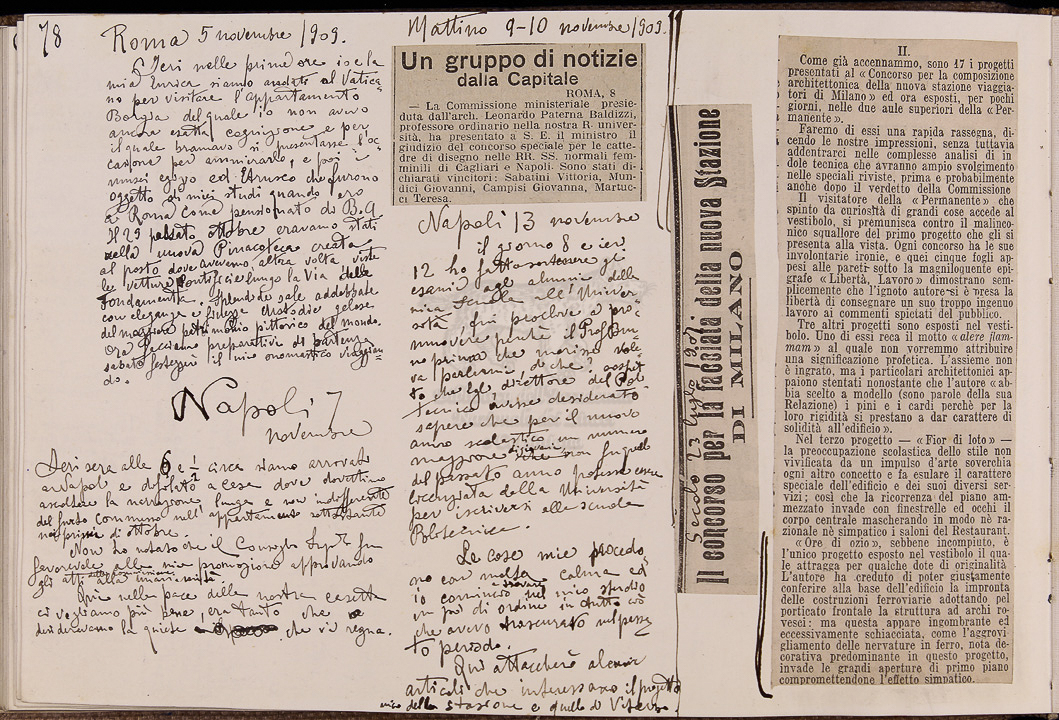 78
Roma 5 novembre 1909.
Ieri nelle prime ore io e la
mia Enrica siamo andati al Vatica-
no per visitare l'appartamento
Borgia del quale io non avevo
ancora esatta cognizione e per
il quale bramavo si presentasse l'oc-
casione per ammirarlo, e poi i
musei egizio ed Etrusco che furono
oggetto di miei studi quando ero
a Roma come pensionato di B.A
Il 29 passato ottobre eravamo stati
nella nuova Pinacoteca creata
al posto dove avevamo altra volta viste
le vetture pontificie lungo la Via delle
Fondamenta. Splendide sale addobbate
con eleganza e finezza custodie gelose
del maggiore patrimonio pittorico del mondo.
Ora facciamo preparativi di partenza
sabato festeggerò il mio onomastico viaggian-
do.
Napoli 7
novembre
Ieri sera alle 6 e ½ circa siamo arrivati
a Napoli e difilato a casa dove dovettimo
ascoltare la narrazione lunga e non indifferente
del furto commesso nell'appartamento sottostante
nei primi di ottobre.
Non ho notato che il Consiglio Sup. fu
favorevole alla mia promozione approvando
gli atti della commissione alla unanimità
Qui nella pace della nostra casetta
ci vogliamo più bene, era tanto che
desideravamo la quiete che vi regna.
Mattino 9-10 novembre 1909.
Un gruppo di notizie
dalla Capitale
ROMA, 8
— La Commissione ministeriale presie-
duta dall'arch. Leonardo Paterna Baldizzi,
professore ordinario nella nostra R. univer-
sità, ha presentato a S. E. il ministro il
giudizio del concorso speciale per le catte-
dre di disegno nelle RR. SS. normali fem-
minili di Cagliari e Napoli. Sono stati di-
chiarati vincitori: Sabatini Vittoria, Mun-
dici Giovanni, Campisi Giovanna, Martuc-
ci Teresa.
Napoli 13 novembre
il giorno 8 e ieri
12 ho fatto sostenere gli
esami agli alunni della
mia scuola all'Univer-
sità, fui proclive a pro-
muovere perchè il Prof.
prima che morisse vole-
va parlarmi, di che? sospet-
to che egli direttore del Poli-
tecnico avesse desiderato
sapere che per il nuovo
anno scolastico un numero
maggiore di giovani non fu quello
del passato anno potesse essere
licenziata dalla Università
per iscriversi alla scuola
Politecnica.
Le cose mie procedo-
no con molta calma ed
io comincio a trovare nel mio studio
un po' di ordine in tutto ciò
che avevo trascurato nel passa-
to periodo.
Qui attaccherò alcuni
articoli che interessano il progetto
mio della stazione e quello di Viterbo.
Secolo 23 luglio 1907.
Il concorso per la facciata della nuova Stazione
DI MILANO
II.
Come già accennammo, sono 17 i progetti
presentati al « Concorso per la composizione
architettonica della nuova stazione viaggia-
tori di Milano » ed ora esposti, per pochi
giorni, nelle due aule superiori della « Per-
manente ».
Faremo di essi una rapida rassegna, di-
cendo le nostre impressioni, senza tuttavia
addentrarci nelle complesse analisi di in-
dole tecnica che avranno ampio svolgimento
nelle speciali riviste, prima e probabilmente
anche dopo il verdetto della Commissione
Il visitatore della « Permanente » che
spinto da curiosità di grandi cose accede al
vestibolo, si premunisca contro il malinco-
nico squallore del primo progetto che gli si
presenta alla vista. Ogni concorso ha le sue
involontarie ironie, e quei cinque fogli ap-
pesi alle pareti sotto la magniloquente epi-
grafe « Libertà, Lavoro » dimostrano sem-
plicemente che l'ignoto autore si è presa la
libertà di consegnare un suo troppo ingenuo
lavoro ai commenti spietati del pubblico.
Tre altri progetti sono esposti nel vesti-
bolo. Uno di essi reca il motto « alere flam-
mam » al quale non vorremmo attribuire
una significazione profetica. L'assieme non
è ingrato, ma i particolari architettonici ap-
paiono stentati nonostante che l'autore « ab-
bia scelto a modello (sono parole della sua
Relazione) i pini e i cardi perchè per la
loro rigidità si prestano a dar carattere di
solidità all'edificio ».
Nel terzo progetto — « Fior di loto » —
la preoccupazione scolastica dello stile non
vivificata da un impulso d'arte soverchia
ogni altro concetto e fa esulare il carattere
speciale dell'edificio e dei suoi diversi ser-
vizi; così che la ricorrenza del piano am-
mezzato invade con finestrelle ed occhi il
corpo centrale mascherando in modo nè ra-
zionale nè simpatico i saloni del Restaurant.
« Ore di ozio », sebbene incompiuto, è
l'unico progetto esposto nel vestibolo il qua-
le attragga per qualche dote di originalità
L'autore ha creduto di poter giustamente
conferire alla base dell'edificio la impronta
delle costruzioni ferroviarie adottando pel
porticato frontale la struttura ad archi ro-
vesci: ma questa appare ingombrante ed
eccessivamente schiacciata, come l'aggrovi-
gliamento delle nervature in ferro, nota de-
corativa predominante in questo progetto,
invade le grandi aperture di primo piano
compromettendone l'effetto simpatico.